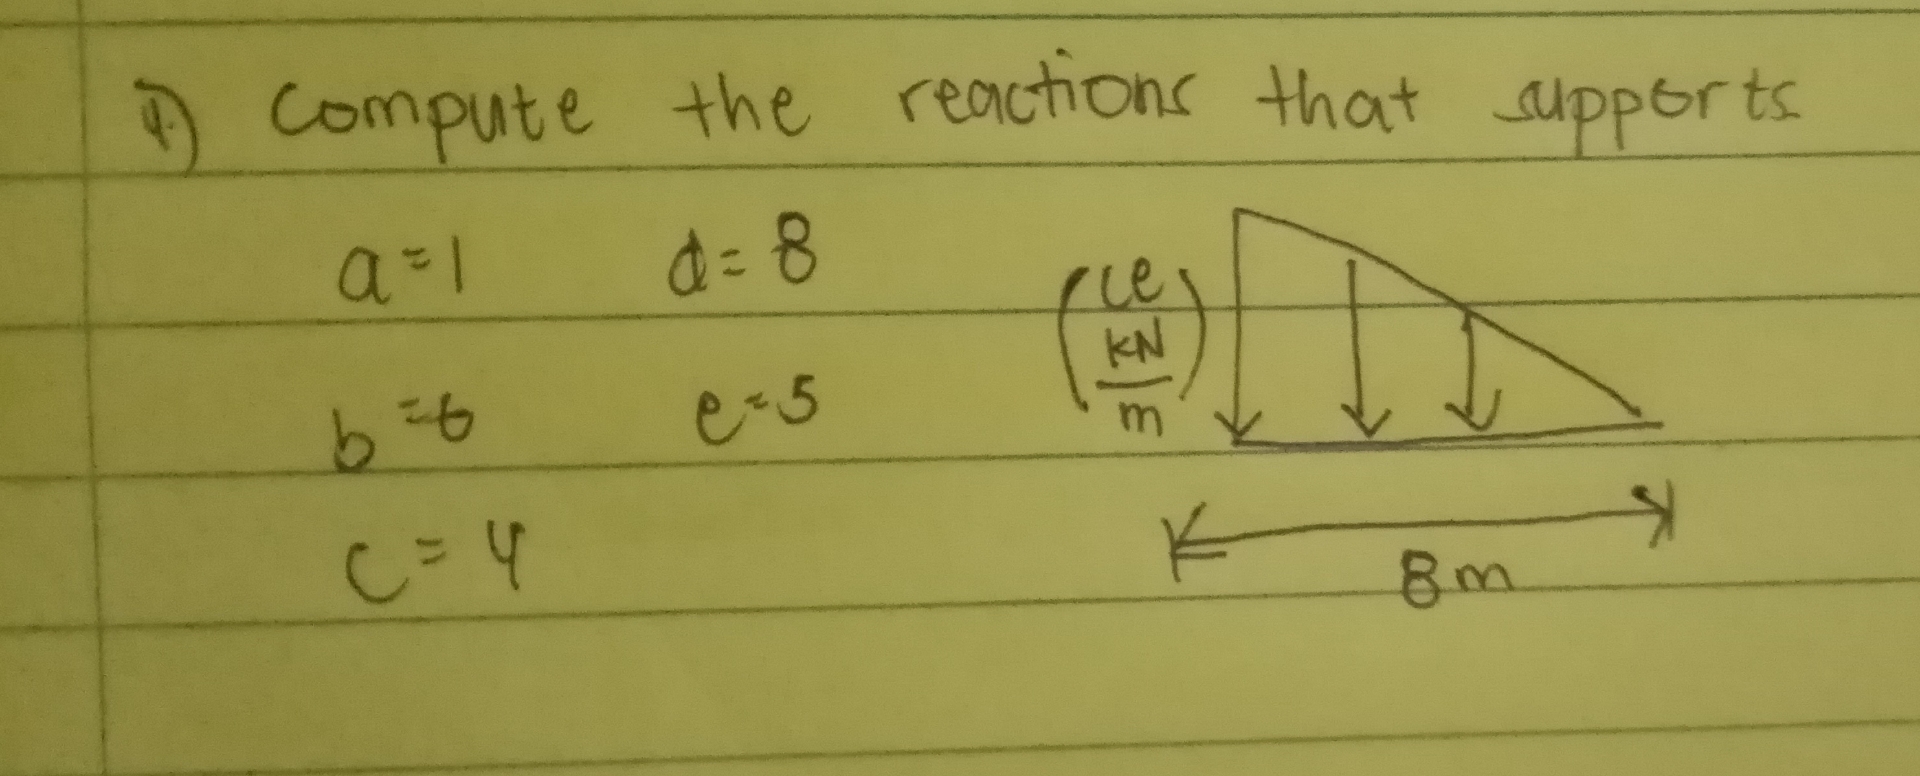 1.) Compute the reactions that supports
a = 1 d = 8
b = 6 e = 5
c = 4
(ce kN/m)
8 m